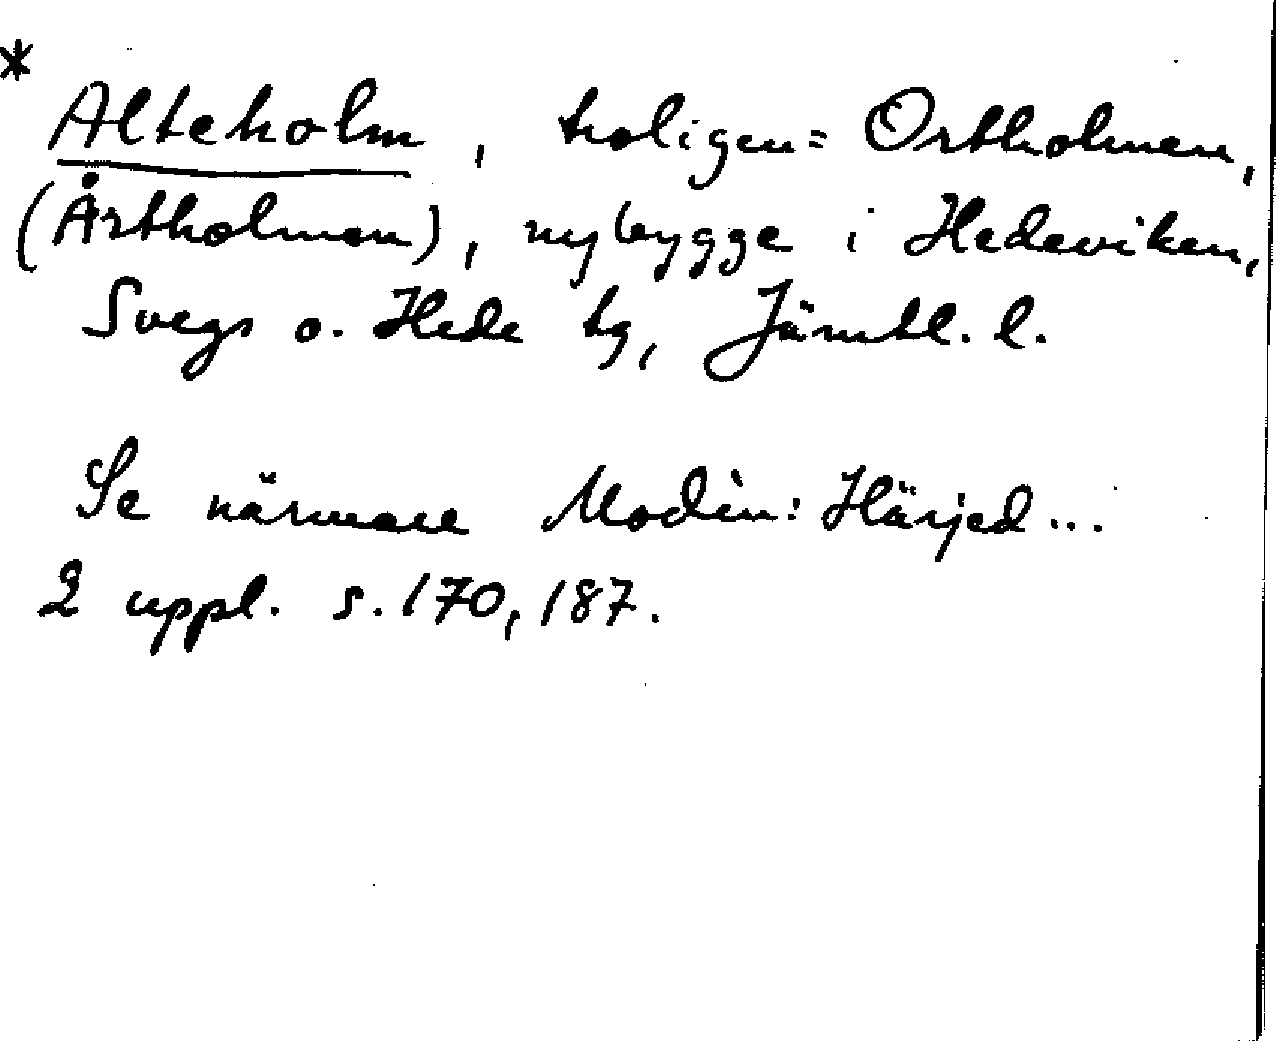 *
Alteholm, troligen = Ortholmen,
(Årtholmen), nybygge i Hedeviken,
Svegs o. Hede tg, Jämtl. l.
Se närmare Modin: Härjed...
2 uppl. s. 170, 187.